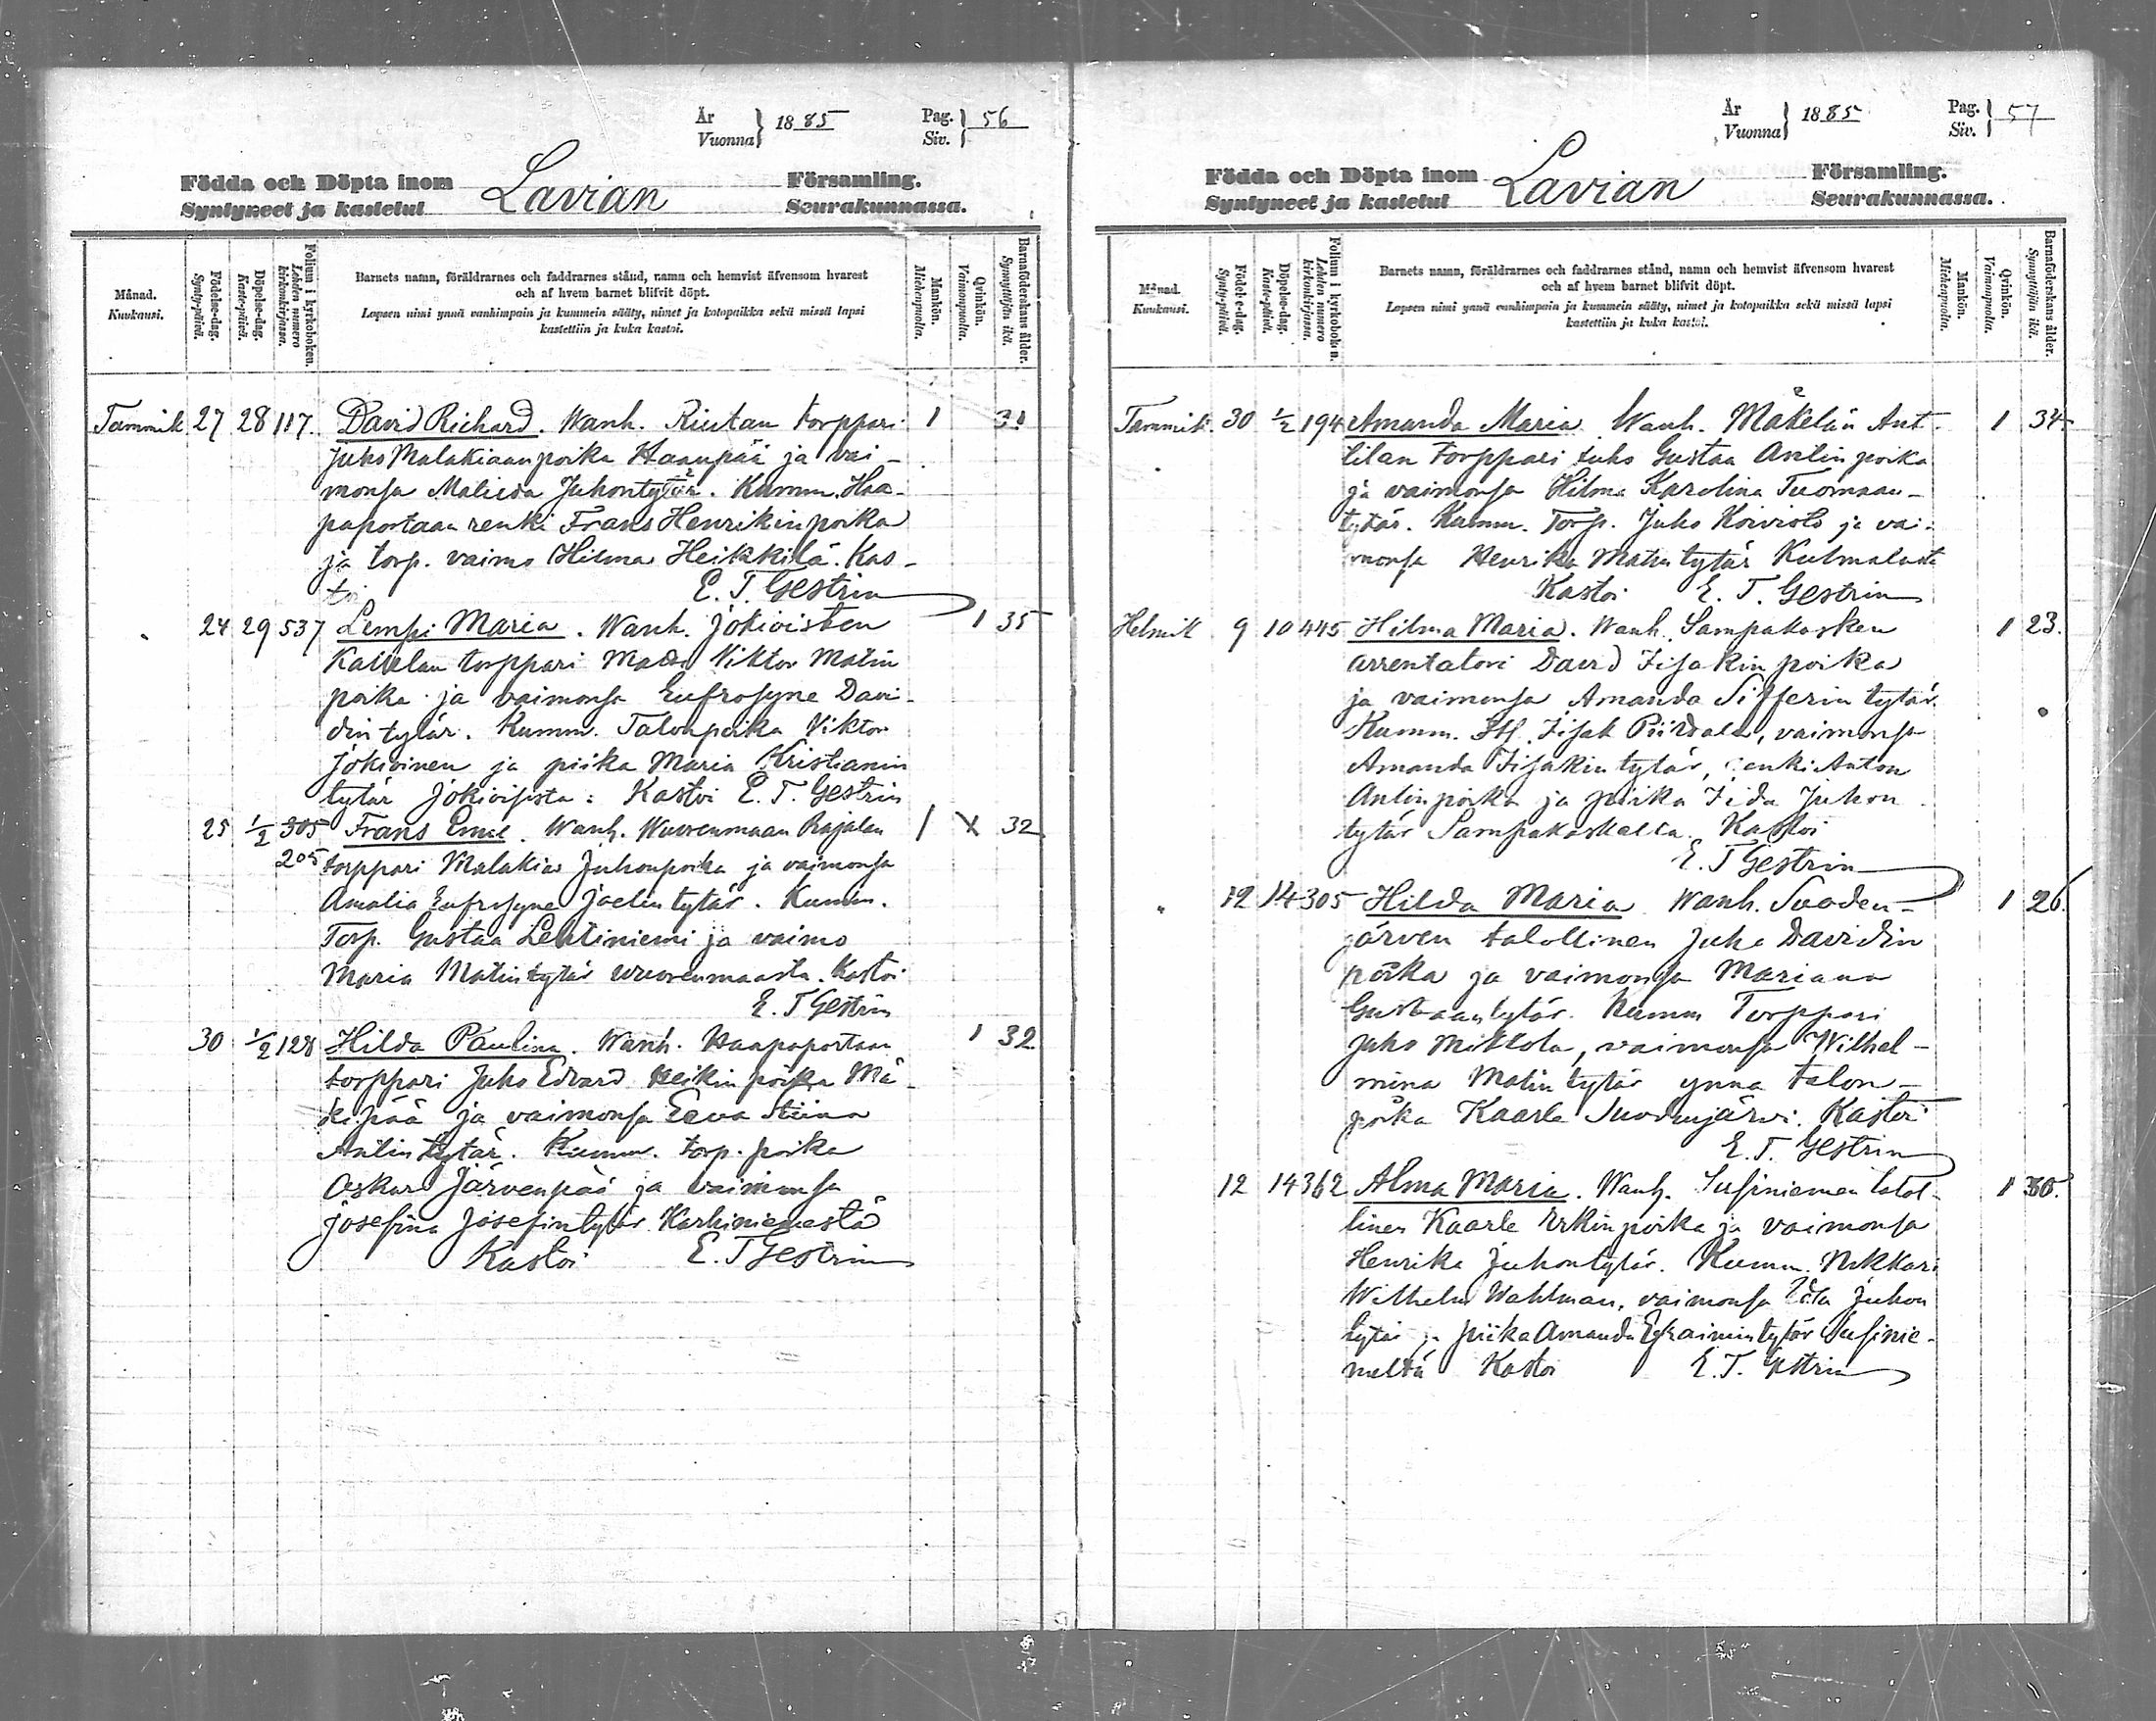 År
Vuonna } 1885
Pag.
Siv. } 56
Födda och Döpta inom Lavian Församling.
Syntyneet ja kastetut Seurakunnassa.
Månad.
Kuukausi.
Födelse-dag.
Synty-päivä.
Döpelse-dag.
Kaste-päivä.
Folium i kyrkoboken.
Lehden numero kirkonkirjassa.
Barnets namn, föräldrarnes och faddrarnes stånd, namn och hemvist äfvensom hvarest
och af hvem barnet blifvit döpt.
Lapsen nimi ynnä vanhimpain ja kummein sääty, nimet ja kotopaikka sekä missä lapsi
kastettiin ja kuka kastoi.
Mankön.
Miehenpuolta.
Qvinkön.
Vaimonpuolta.
Barnaföderskans ålder.
Synnyttäjän ikä.
Tammik. 27 28 117. David Richard. Wanh. Riutan torppari 1 31
Juho Malakiaanpoika Haanpää ja vai-
monsa Maliida Juhontytär. Kumm. Haa-
paportaan renki Frans Henrikinpoika
ja torp. vaimo Hilma Heikkilä. Kas-
toi E. T. Gestrin
24 29 537 Lempi Maria. Wanh. Jokivisten 1 35
torppari Viktor Matin
poika ja vaimonsa Eufrosyne Davi-
din tytär. Kumm. Talonpoika Viktor
Jokivinen ja piika Maria Kristianin
tytär Jokivisista: Kastoi E. T. Gestrin
25 1/2 305 Frans Emil. Wanh. Wuorenmaan Rajalan 1 X 32
205 torppari Malakias Juhonpoika ja vaimonsa
Amalia Eufrosyne Joelin tytär. Kumm.
Torp. Gustaa Lehtiniemi ja vaimo
Maria Matintytär wuorenmaasta. Kastoi
E. T Gestrin
30 1/2 128 Hilda Paulina. Wanh. Haapaportaan 1 32
torppari Juho Edvard Heikinpoika Mä-
kipää ja vaimonsa Eeva Stiina
Antintytär. Kumm. torp. poika
Oskar Järvenpää ja vaimonsa
Josefina Josefintytär Karhiniemestä
Kastoi E. T Gestrin
År
Vuonna } 1885
Pag.
Siv. } 57
Födda och Döpta inom Lavian Församling.
Syntyneet ja kastetut Seurakunnassa.
Månad.
Kuukausi.
Födelse-dag.
Synty-päivä.
Döpelse-dag.
Kaste-päivä.
Folium i kyrkoboken.
Lehden numero kirkonkirjassa.
Barnets namn, föräldrarnes och faddrarnes stånd, namn och hemvist äfvensom hvarest
och af hvem barnet blifvit döpt.
Lapsen nimi ynnä vanhimpain ja kummein sääty, nimet ja kotopaikka sekä missä lapsi
kastettiin ja kuka kastoi.
Mankön.
Miehenpuolta.
Qvinkön.
Vaimonpuolta.
Barnaföderskans ålder.
Synnyttäjän ikä.
Tammik. 30 1/2 194 Amanda Maria. Wanh. Mäkelän Ant- 1 34
tilan torppari Juho Gustaa Antinpoika
ja vaimonsa Hilma Karolina Tuomaan-
tytär. Kumm. Torp. Juho Koivisto ja vai-
monsa Henrika Matintytär Kulmalasta
Kastoi E. T. Gestrin
Helmik 9 10 445 Hilma Maria. Wanh. Sampakosken 1 23.
arrentatori David Iisakin poika
ja vaimonsa Amanda Sifferin tytär.
Kumm. Iisak, vaimonsa
Amanda Iisakintytär, renki Anton
Antinpoika ja piika Iida Juhon
tytär Sampakoskelta. Kastoi
E. T Gestrin
" 12 14 305 Hilda Maria Wanh. Suoden- 1 26.
järven talollinen Juha Davidin
poika ja vaimonsa Mariana
Gustaantytär. Kumm Torppari
Juho Mikkola, vaimonsa Wilhel-
mina Matintytär ynnä talon-
poika Kaarle Suodenjärvi. Kastoi
E. T. Gestrin
12 14 362 Alma Maria. Wanh. Susiniemen talol- 1 30.
linen Kaarle Erkinpoika ja vaimonsa
Henrika Juhontytär. Kumm. Nikkari
Wilhelm Wahlman, vaimonsa Ida Juhon
tytär ja piika Amanda Efraimintytär Susinie-
meltä Kastoi E. T. Gestrin